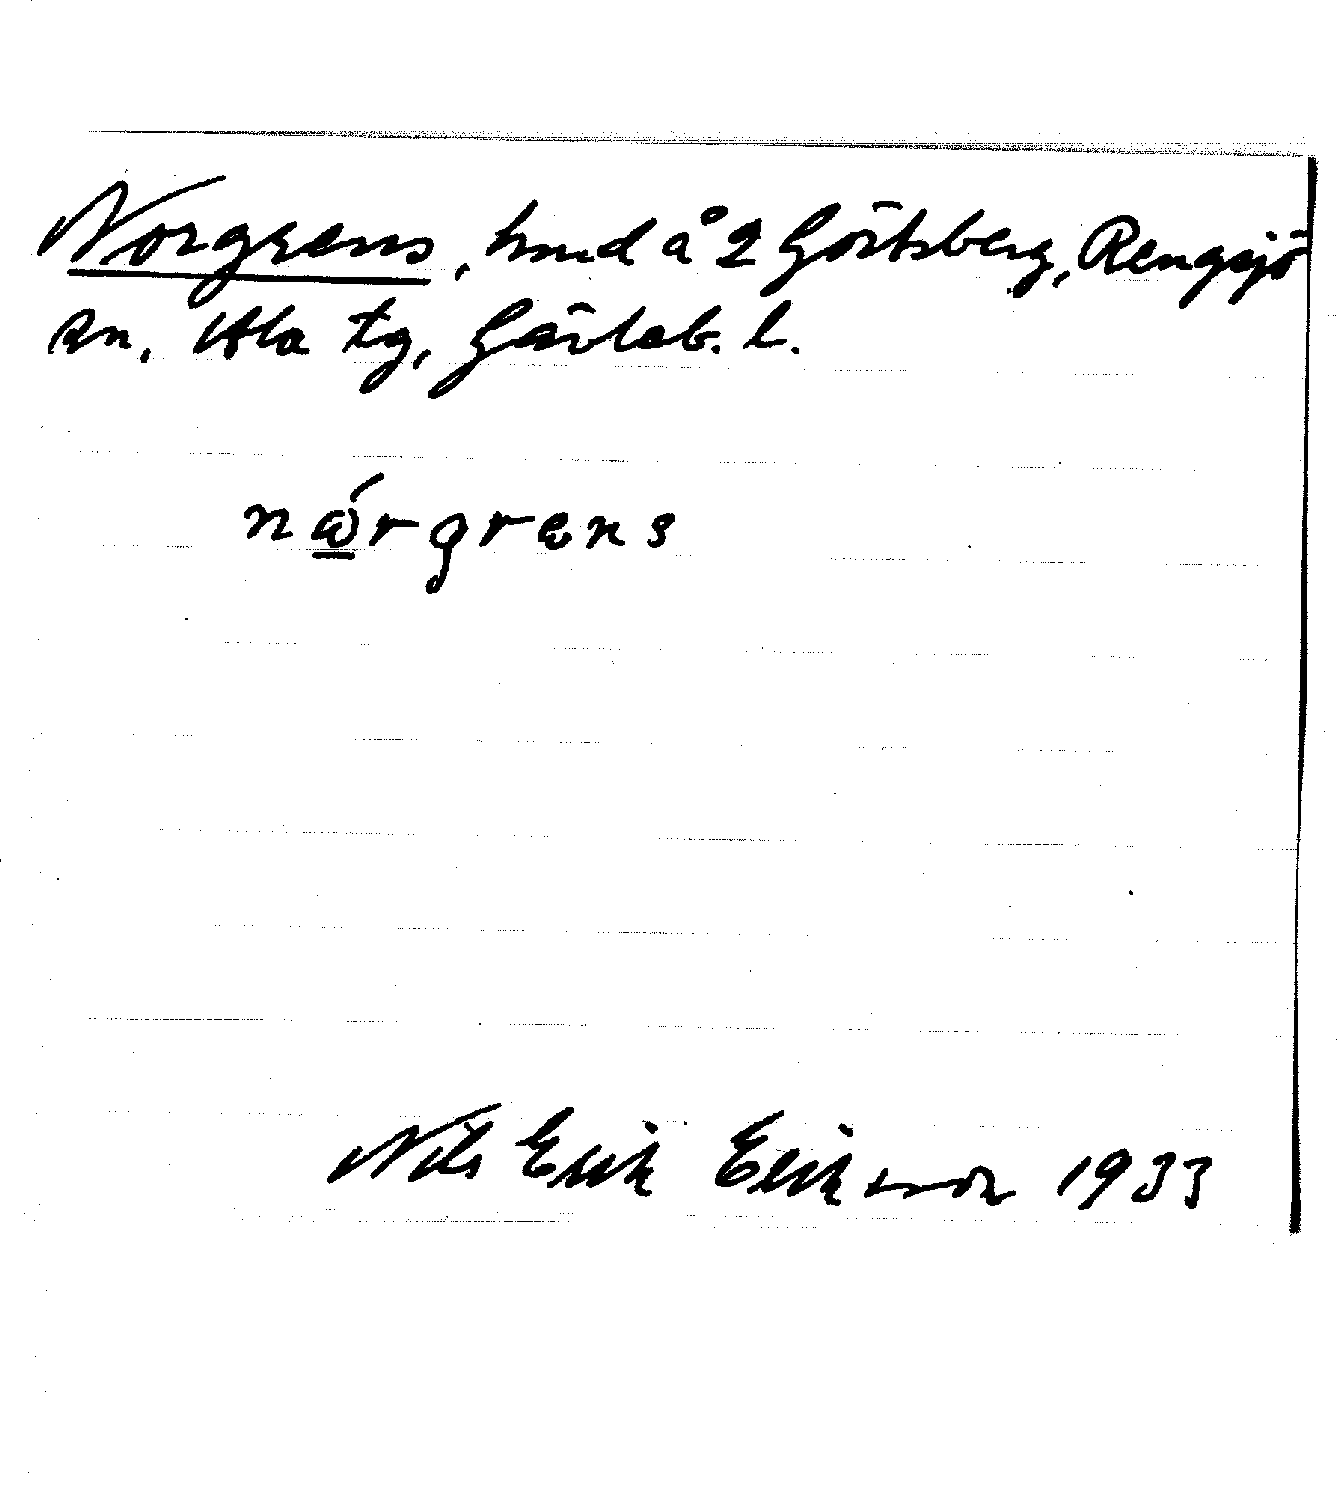 Norgrens, hmd å 2 Görtsberg, Rengsjö
sn. Ala tg, Gävleb. l.
nǻrgræns
Nils Erik Eriksson 1933